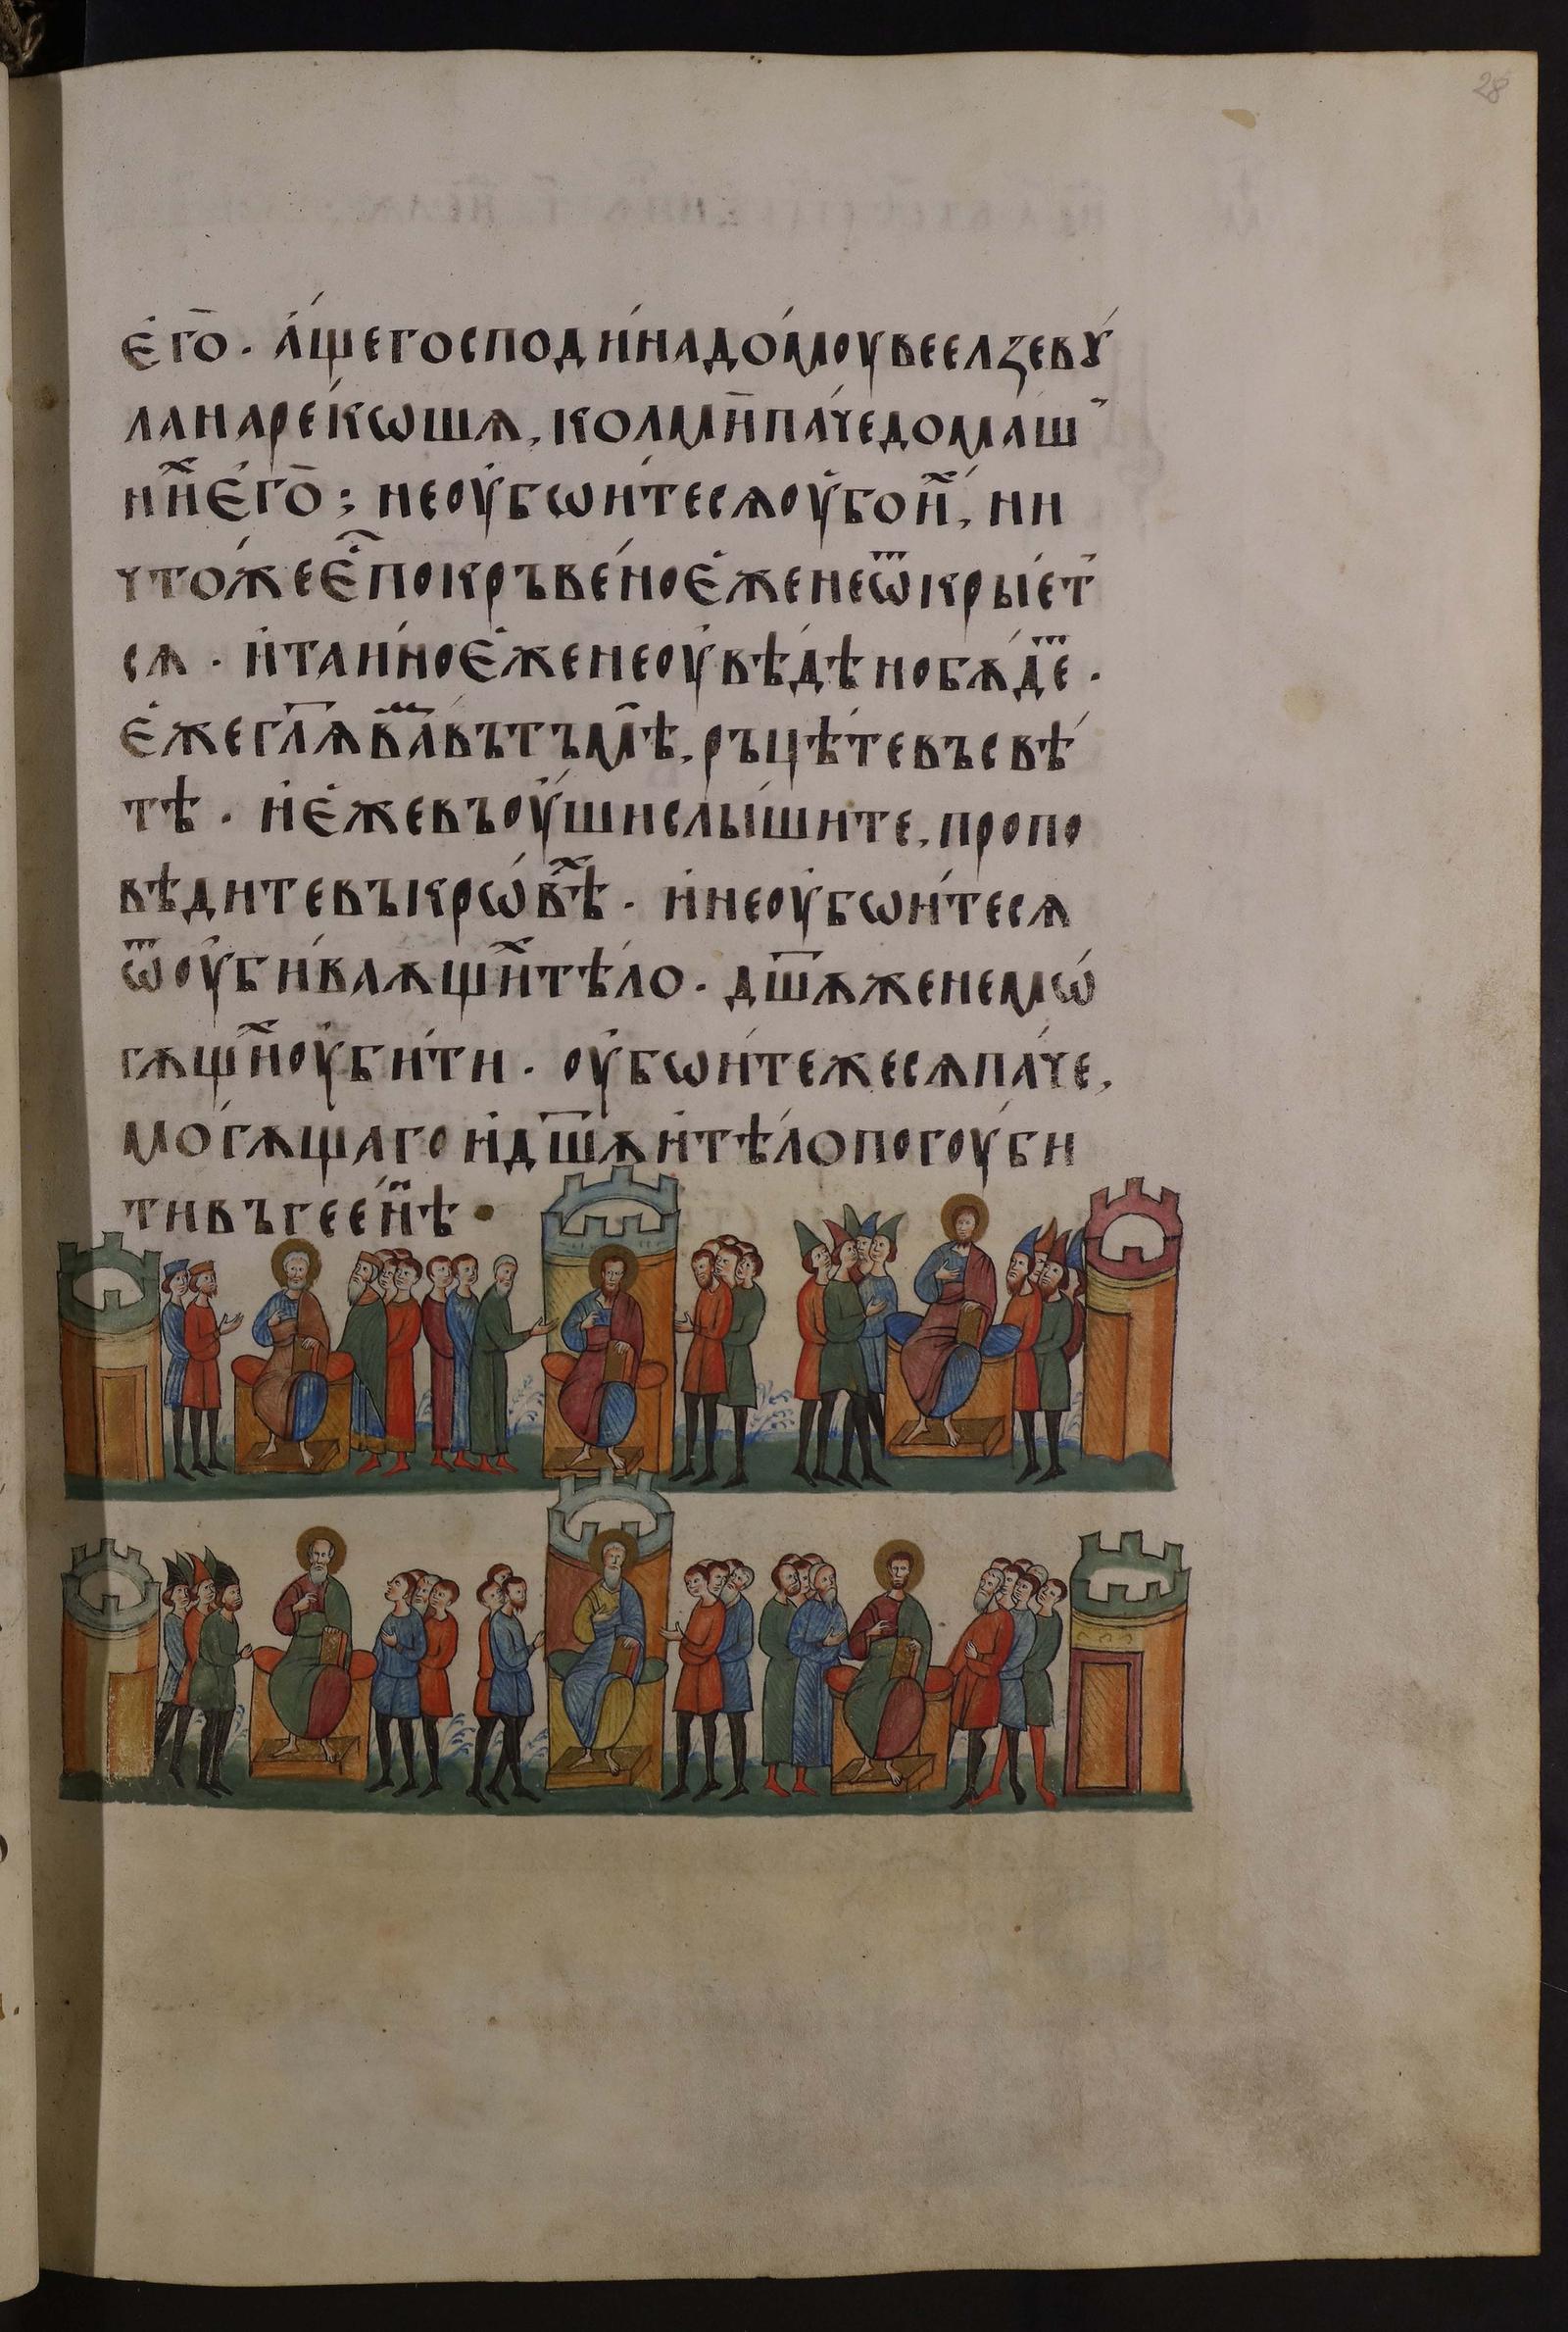 28
є҆го̄ · а҆́щегосподи́надо́моувеелзевꙋ́
ланаре́кѡшѧ, колмн̄па́чедомаш̾
нїи́хє҆го̄ ; неоу҆бѡи́тесѧоу҆бои́х, ни
что́жеє҆́с̑покръве́ноє҆́женеѿкры́ет̾
сѧ · и҆таи́ноє҆́женеоу҆вѣ́дѣнобѫ́де̄т ·
є҆́жегл҃ѫва́мвътъмѣ̀, ръцѣ́тевъсвѣ́
тѣ · и҆є҆́жевъоу҆́шислы́шите, пропо
вѣдитевъкрѡ́вѣх · и҆неоу҆бѡи́тесѧ
ѿоу҆би́ваѫщи́хтѣ́ло · дш҃ѫженемѡ́
гѫщи́хоу҆би́ти · оу҆бѡи́тежесѧпа́че,
мо́гѫщагои҆дш҃ѫи҆тѣ́лопогоу́би
тивъгеен́нѣ ·